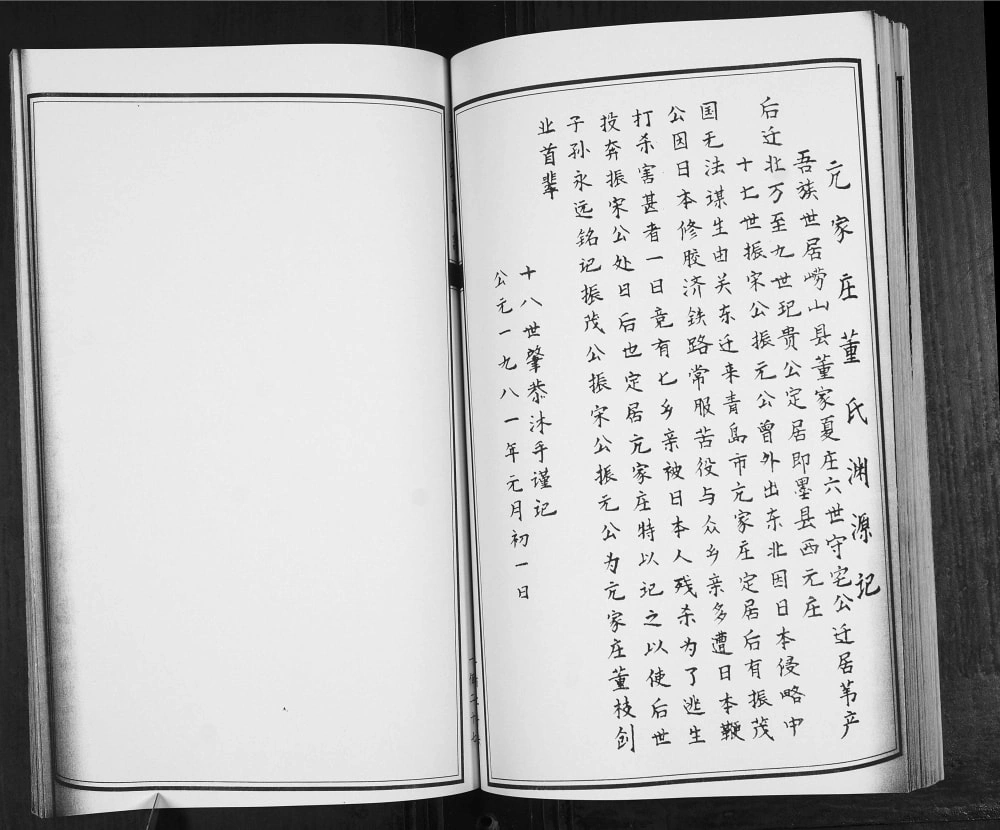 亢家庄董氏渊源记
吾族世居崂山县董家夏庄六世守宅公迁居苇产
后迁北万至九世玘贵公定居即墨县西元庄
十七世振宋公振元公曾外出东北因日本侵略中
国无法谋生由关东迁来青岛市亢家庄定居后有振茂
公因日本修胶济铁路常服苦役与众乡亲多遭日本鞭
打杀害甚者一日竟有七乡亲被日本人残杀为了逃生
投奔振宋公处日后也定居亢家庄特以记之以使后世
子孙永远铭记振茂公振宋公振元公为亢家庄董枝创
业首辈
十八世肇恭沐手谨记
公元一九八一年元月初一日